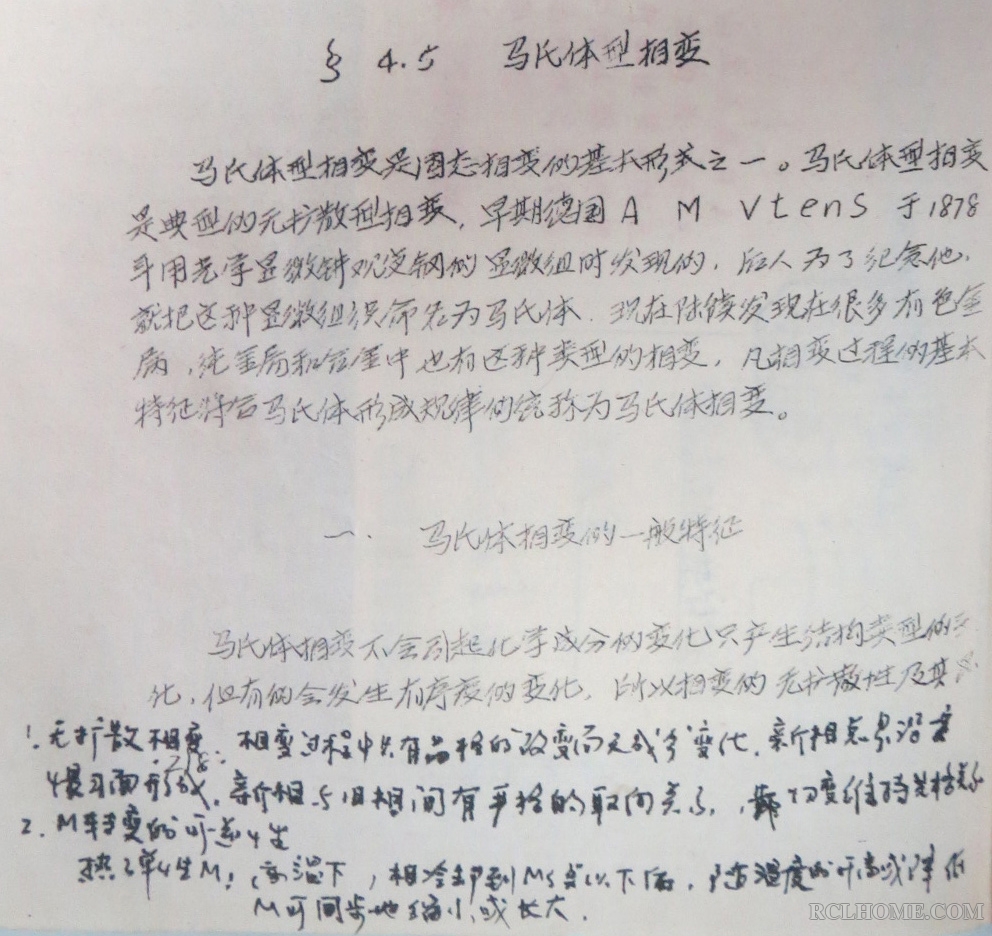 § 4.5 马氏体型相变
马氏体型相变是固态相变的基本形式之一。马氏体型相变
是典型的无扩散型相变，早期德国 A M vtens 于1878
年用光学显微镜观复钢的显微组时发现的，后人为了纪念他，
就把这种显微组织命名为马氏体．现在陆续发现在很多有色金
属，纯金属和合金中也有这种类型的相变，凡相变过程的基本
特征符合马氏体形成规律的统称为马氏体相变。
一、 马氏体相变的一般特征
马氏体相变不会引起化学成分的变化只产生结构类型的
化，但有的会发生有序度的变化，所以相变的无扩散性及其
1．无扩散相变：相变过程中只有晶格的改变而无成分变化．新相总是沿
惯习面形成，新相与旧相间有严格的取向关系，切变维持共格关系
2．M转变的可逆性
热弹性M：高温下，相冷却到Ms点以下后，随温度的升高或降低
M可同步地缩小或长大．
RCLHOME.COM